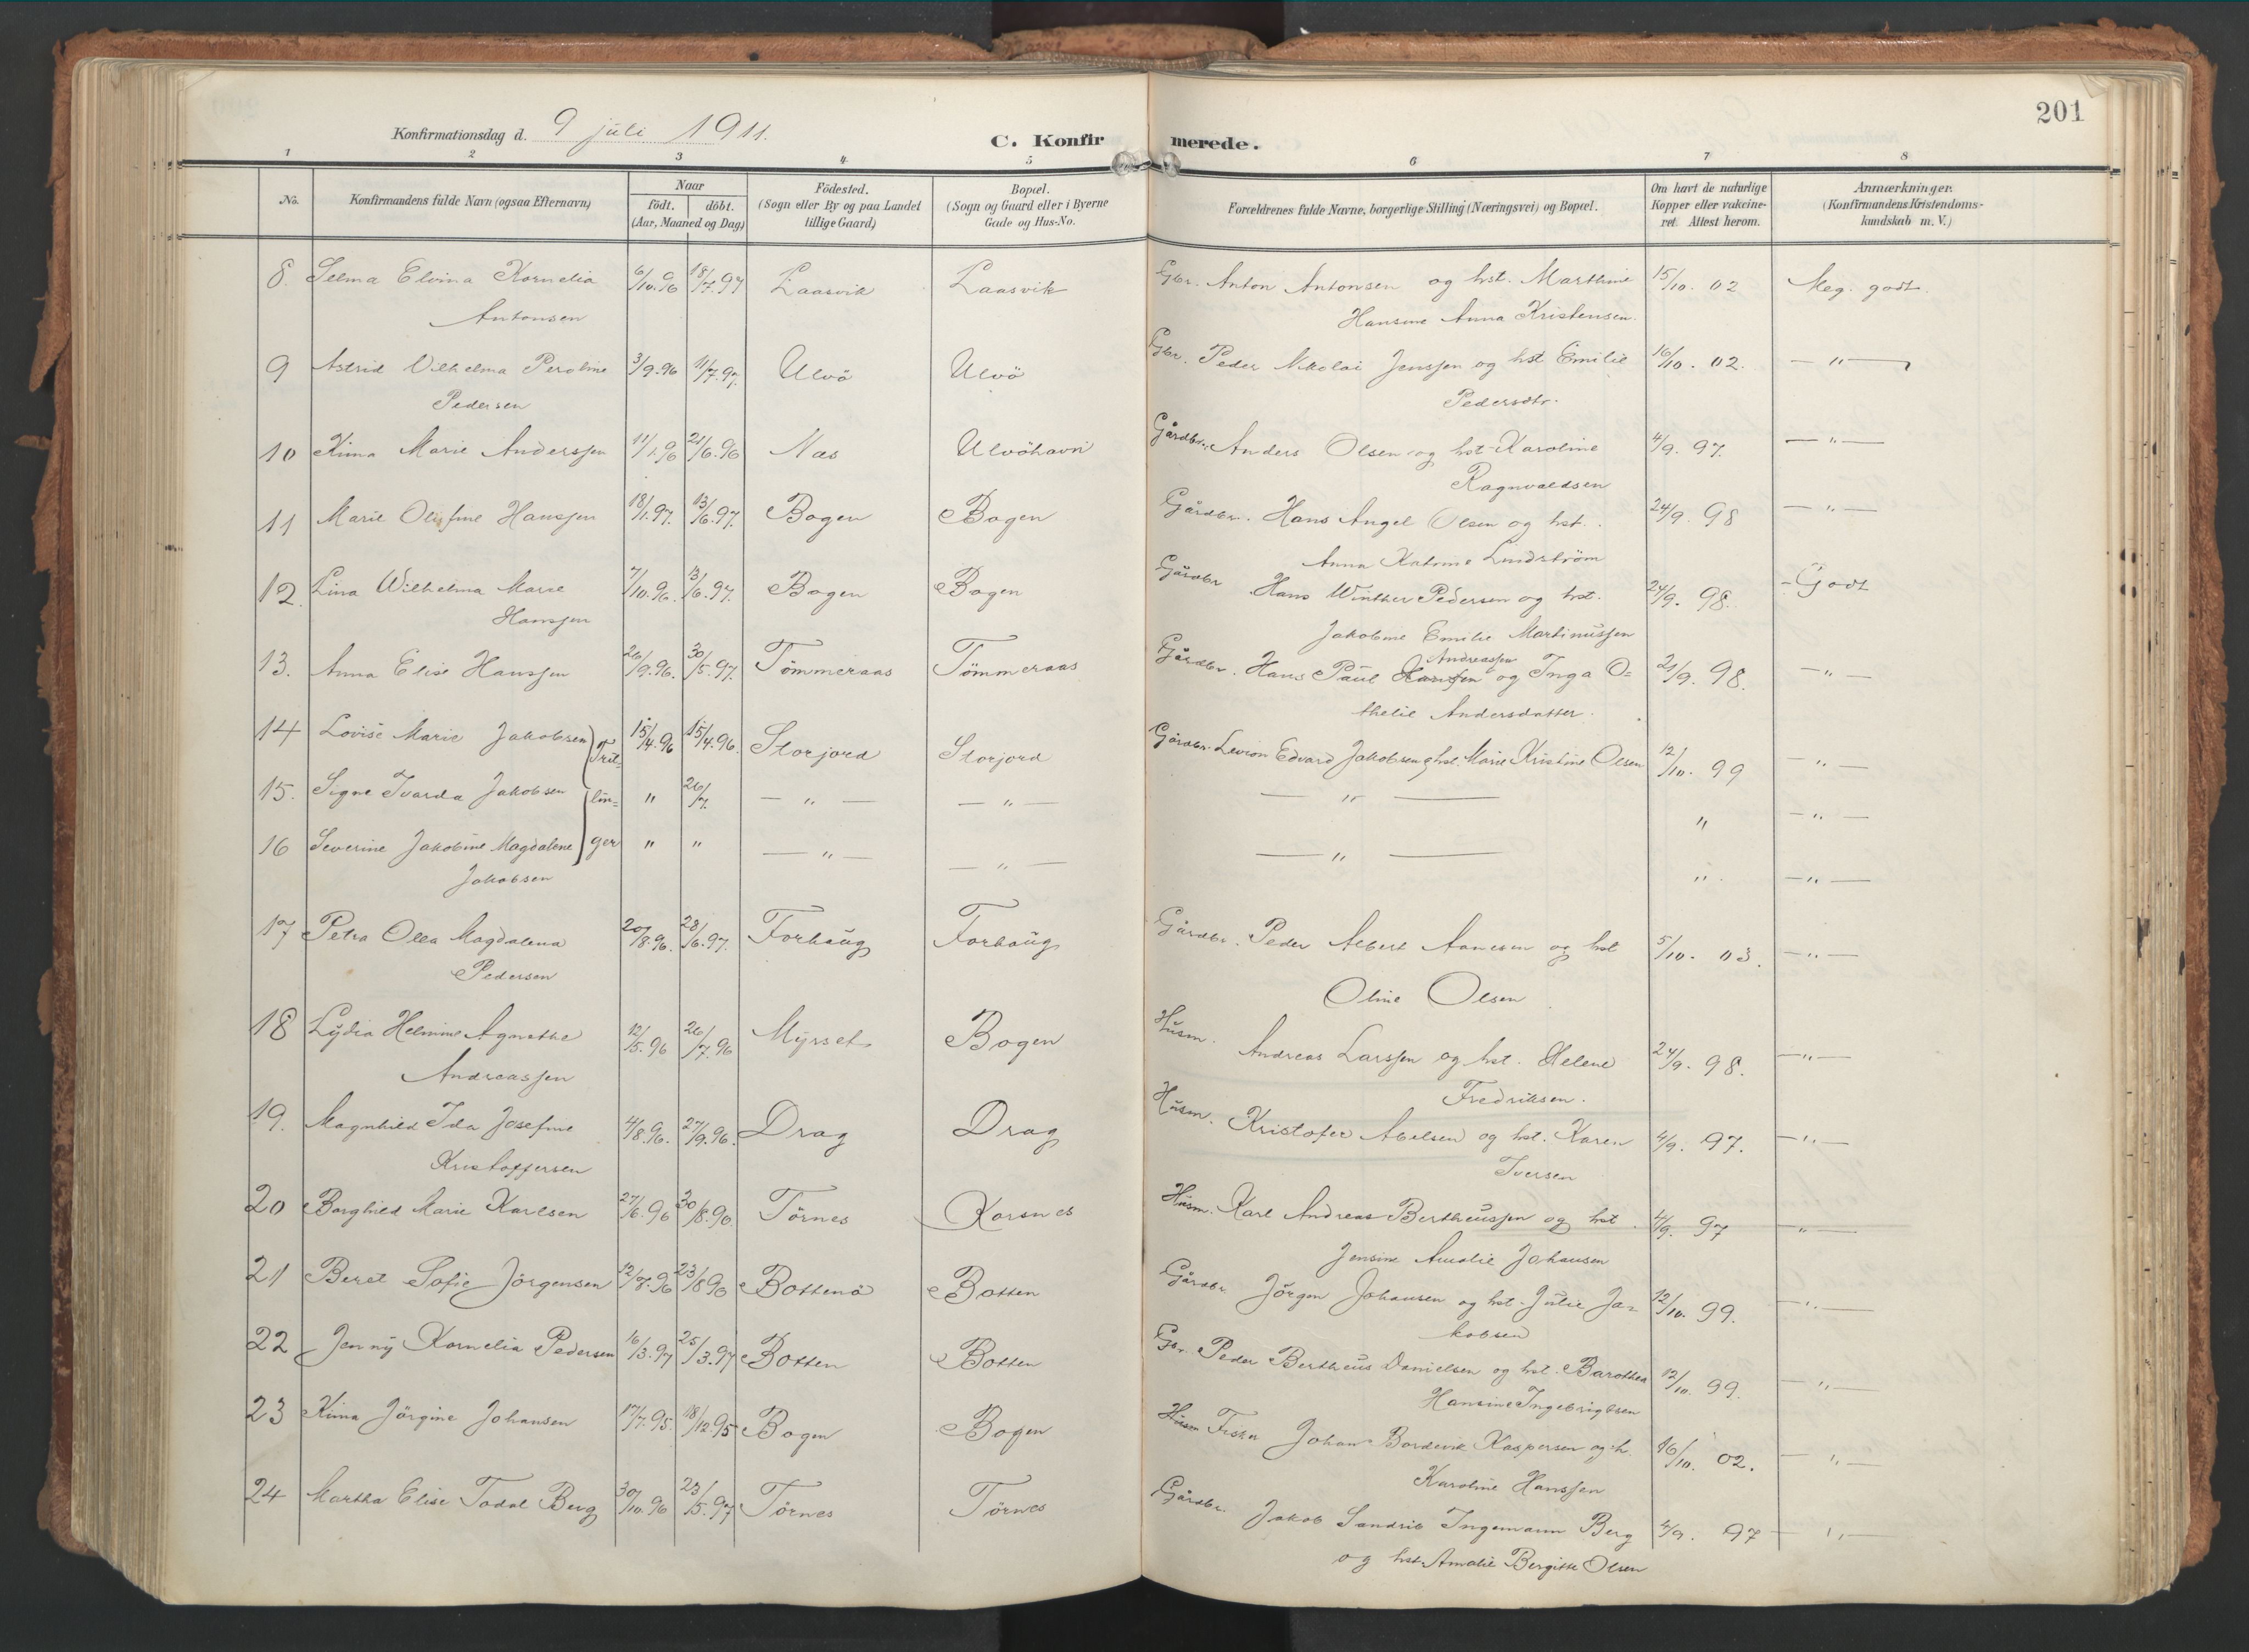 201
Konfirmationsdag d. 9 juli 1911.
C. Konfirmerede.
1 2 3 4 5 6 7 8
No.
Konfirmandens fulde Navn (ogsaa Efternavn)
Naar
födt. döbt.
(Aar, Maaned og Dag)
Födested.
(Sogn eller By og paa Landet
tillige Gaard)
Bopæl.
(Sogn og Gaard eller i Byerne
Gade og Hus-No.
Forældrenes fulde Navne, borgerlige Stilling (Næringsvei) og Bopæl.
Om havt de naturlige
Kopper eller vakcine-
ret. Attest herom.
Anmærkninger.
(Konfirmandens Kristendoms-
kundskab m. V.)
8. Selma Elvina Kornelia 6/10.96 18/7.97 Laasvik Laasvik Gbr. Anton Antonsen og hst. Marthine 15/10. 02 Meg. godt.
Antonsen Hansine Anna Kristensen.
9 Astrid Vilhelma Peroline 3/9.96 11/7.97. Ulvö Ulvö Gbr. Peder Nikolai Jenssen og hst Emilie 16/10. 02. — " —
Pedersen Pedersdtr.
10 Kima Marie Anderssen 11/1.96 21/6.96 Næs Ulvöhavn Gårdbr. Anders Olsen og hst Karoline 4/9. 97. — " —
Ragnvaldsen
11 Marie Olufine Hanssen 18/1.97. 13/6.97. Bogen Bogen Gårdbr. Hans Angel Olsen og hst. 24/9. 98 — " —
Anna Katrine Lindström
12. Lina Wilhelma Marie 7/10.96. 13/6.97. Bogen Bogen Gårdbr Hans Winther Pedersen og hst. 24/9. 98. - Godt
Hanssen Jakobine Emilie Martinussen
13. Anna Elise Hanssen 26/9.96. 30/5.97. Tömmeraas Tömmeraas Gårdbr. Hans Paul Hansen Andreassen og Inga O= 21/9. 98. — " —
thelie Andersdatter.
14 Lovise Marie Jakobsen Tril= 15/4.96 15/4.96. Storjord Storjord Gårdbr. Levion Edvard Jakobsen og hst. Marie Kristine Olsen 12/10. 99 — " —
15. Signe Ivarda Jakobsen lin= " 26/7. — " — — " — — " — " — " —
16 Severine Jakobine Magdalene ger " " — " — — " — — " — " — " —
Jakobsen
17 Petra Olea Magdalena 20/8.96. 28/6.97. Forhaug Forhaug Gårdbr. Peder Albert Aanesen og hst 5/10. 03. — " —
Pedersen Oline Olsen
18 Lydia Helmine Agnethe 12/5.96 26/7.96 Myrset Bogen Husm. Andreas Larssen og hst. Helene 24/9. 98. — " —
Andreassen Fredriksen.
19. Magnhild Ida Josefine 4/8.96. 27/9.96. Drag Drag Husm. Kristofer Abelsen og hst. Karen 4/9. 97. — " —
Kristoffersen Iversen
20 Borghild Marie Karlsen 27/6.96 30/8.96. Törnes Korsnes Husm. Karl Andreas Bertheussen og hst. 4/9. 97 — " —
Jensine Amalie Johansen
21 Beret Sofie Jörgensen 12/7.96 23/8 96 Bottenö Botten Gårdbr. Jörgen Johansen og hst. Julie Ja= 12/10. 99. — " —
kobsen
22 Jenny Kornelia Pedersen 16/3.97 25/3.97 Botten Botten Gbr. Peder Bertheus Danielsen og hst. Barothea 12/10. 99. — " —
Hansine Ingebrigtsen
23 Kima Jörgine Johansen 17/7.95. 18/12.95 Bogen Bogen Husm Fisker Johan Bordevik Kaspersen og h. 16/10. 02. — " —
Karoline Hanssen
24 Martha Elise Todal Berg 30/10.96 23/5.97 Törnes Törnes Gårdbr. Jakob Sandrib Ingemann Berg 4/9. 97 — " —
og hst Amalie Bergitte Olsen